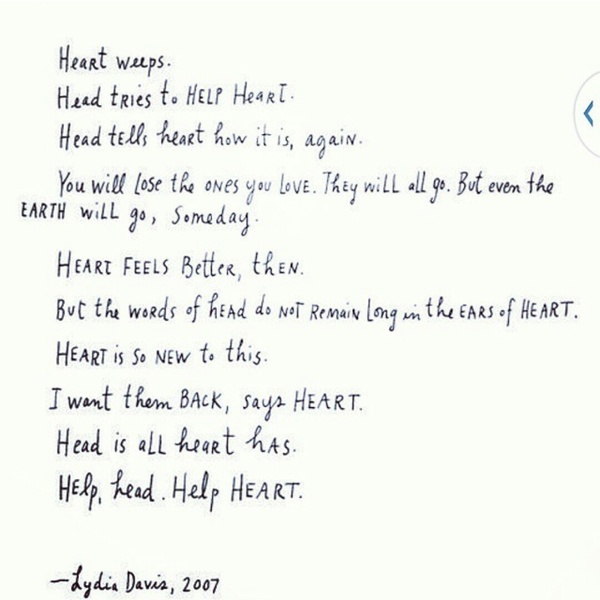 HeaRt weeps.
Head tRies to HELP HeaRT.
Head tells heart how it is, again.
You will Lose the ONES you LOVE. They wiLL all go. But even the
EARTH wiLL go, Someday.
HEART FEELS Better, thEN.
But the woRds of hEAd do NOT Remain Long in the EARS of HEART.
HEART is So NEW to this.
I want them BACK, says HEART.
Head is aLL heaRt hAS.
HElp, head. Help HEART.
—Lydia Davis, 2007